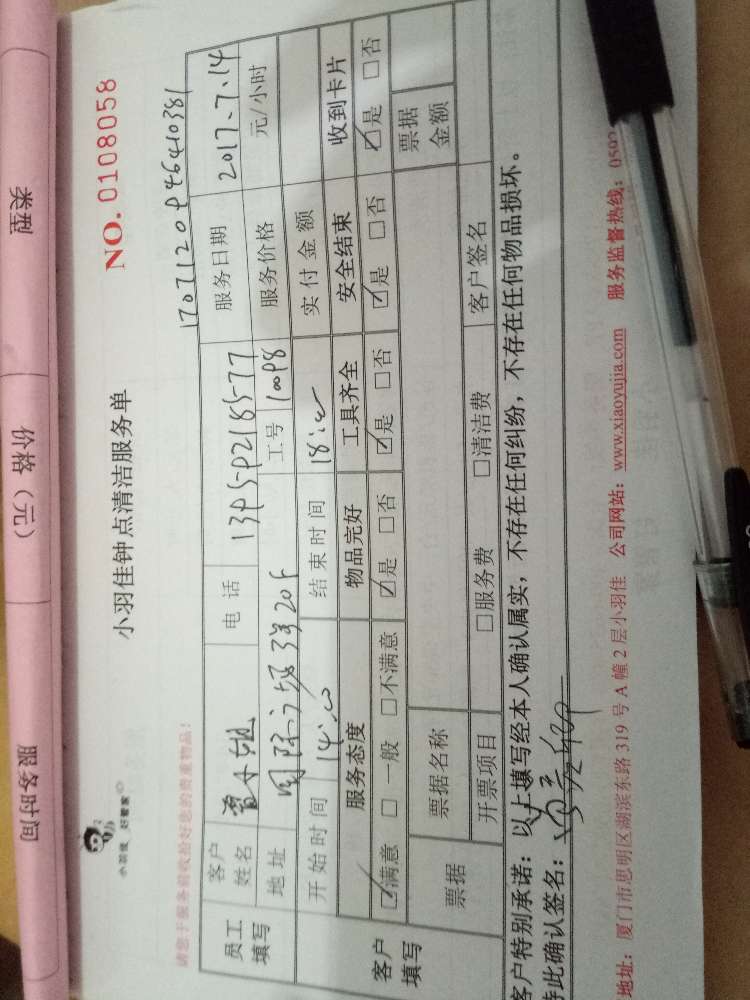 类型
价格（元）
服务时间
小羽佳 好管家
小羽佳钟点清洁服务单
NO. 0108058
请您于服务前收拾好您的贵重物品！
员工填写
客户姓名
电话
服务日期 2017.7.14
地址
工号 10098
服务价格 元/小时
开始时间 14:00
结束时间 18:00
实付金额
客户填写
服务态度 物品完好 工具齐全 安全结束 收到卡片
☑满意 □一般 □不满意 ☑是 □否 ☑是 □否 ☑是 □否 ☑是 □否
票据
票据名称
票据金额
开票项目 □服务费 □清洁费 客户签名
客户特别承诺：以上填写经本人确认属实，不存在任何纠纷，不存在任何物品损坏。
特此确认签名：
地址：厦门市思明区湖滨东路 319 号 A 幢 2 层小羽佳 公司网站：www.xiaoyujia.com 服务监督热线：0592